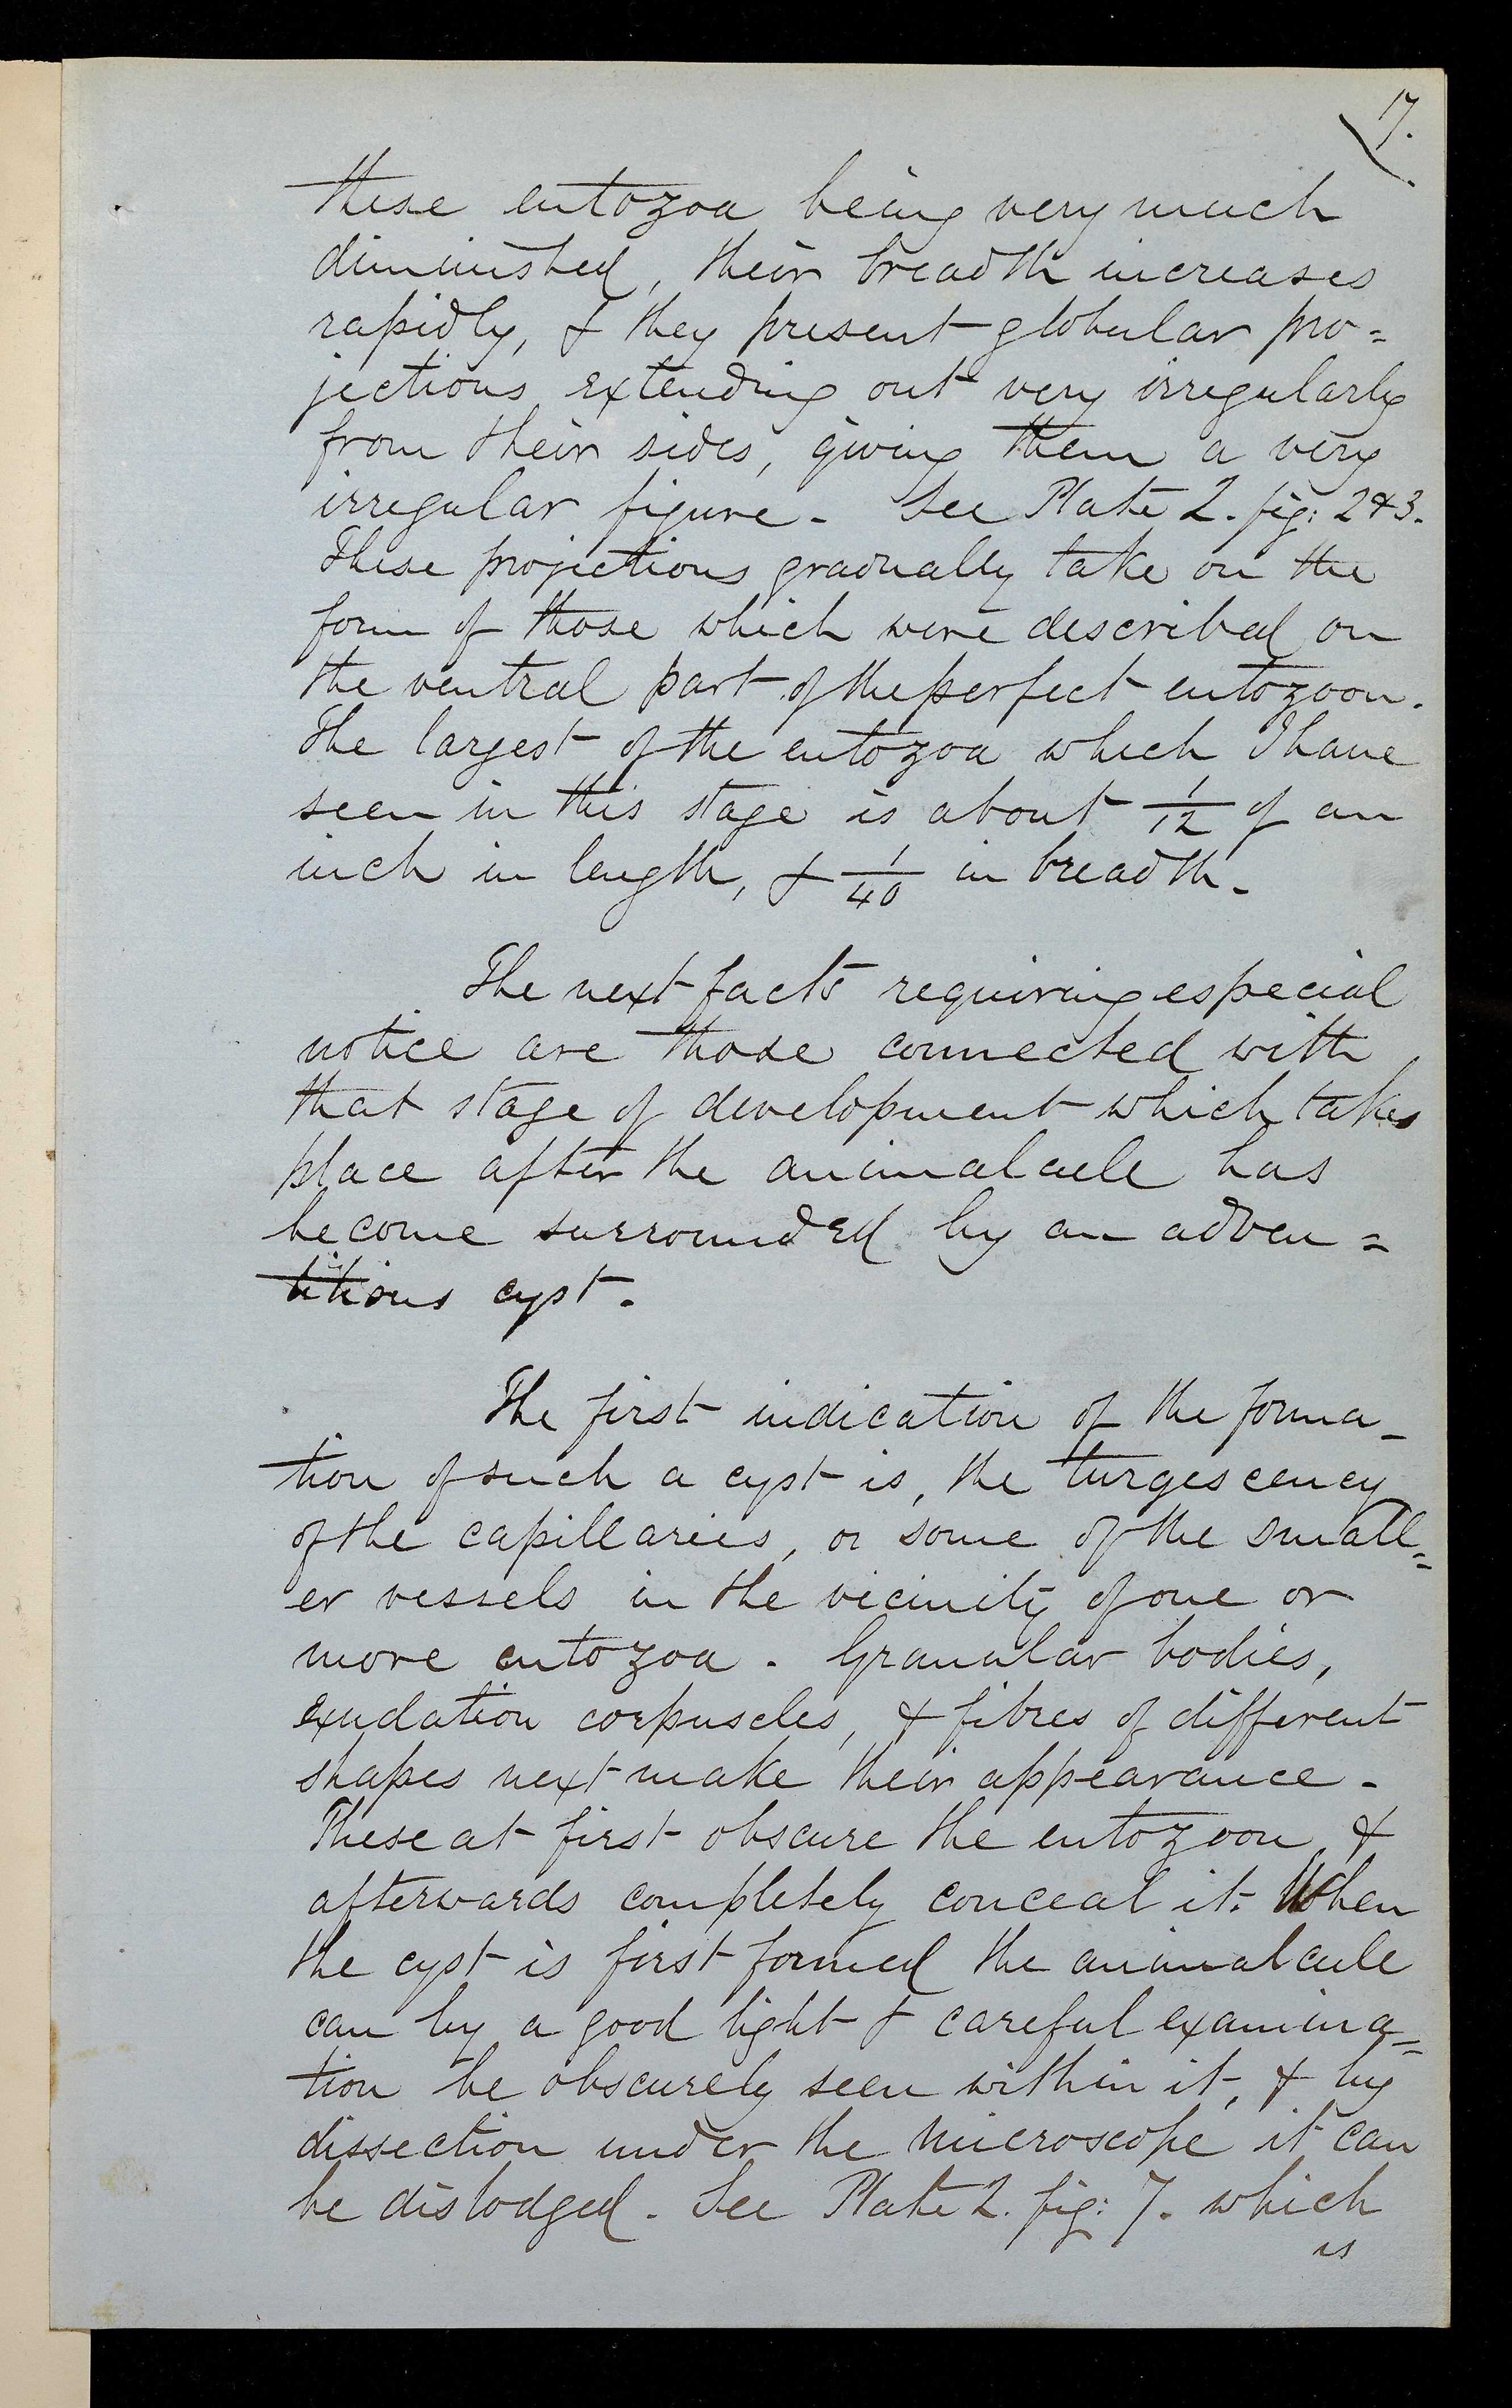 17.
these entozoa being very much
diminished, their breadth increases
rapidly, & they present globular pro=
jections extending out very irregularly
from their sides, giving them a very
irregular figure - See Plate 2. fig: 2 & 3.
These projections gradually take on the
form of those which were described on
the ventral part of the perfect entozoon.
The largest of the entozoa which I have
seen in this stage is about 1/12 of an
inch in length, & 1/40 in breadth.
The next facts requiring especial
notice are those connected with
that stage of development which takes
place after the animalcule has
become surrounded by an adven=
titious cyst.
The first indication of the forma-
tion of such a cyst is, the turgescency
of the capillaries, or some of the small=
er vessels in the vicinity of one or
more entozoa. Granular bodies,
exudation corpuscles, & fibres of different
shapes next make their appearance -
These at first obscure the entozoon, &
afterwards completely conceal it. When
the cyst is first formed the animalcule
can by a good light & careful examina=
tion be obscurely seen within it, & by
dissection under the microscope it can
be dislodged. See Plate 2. fig: 7. which
is